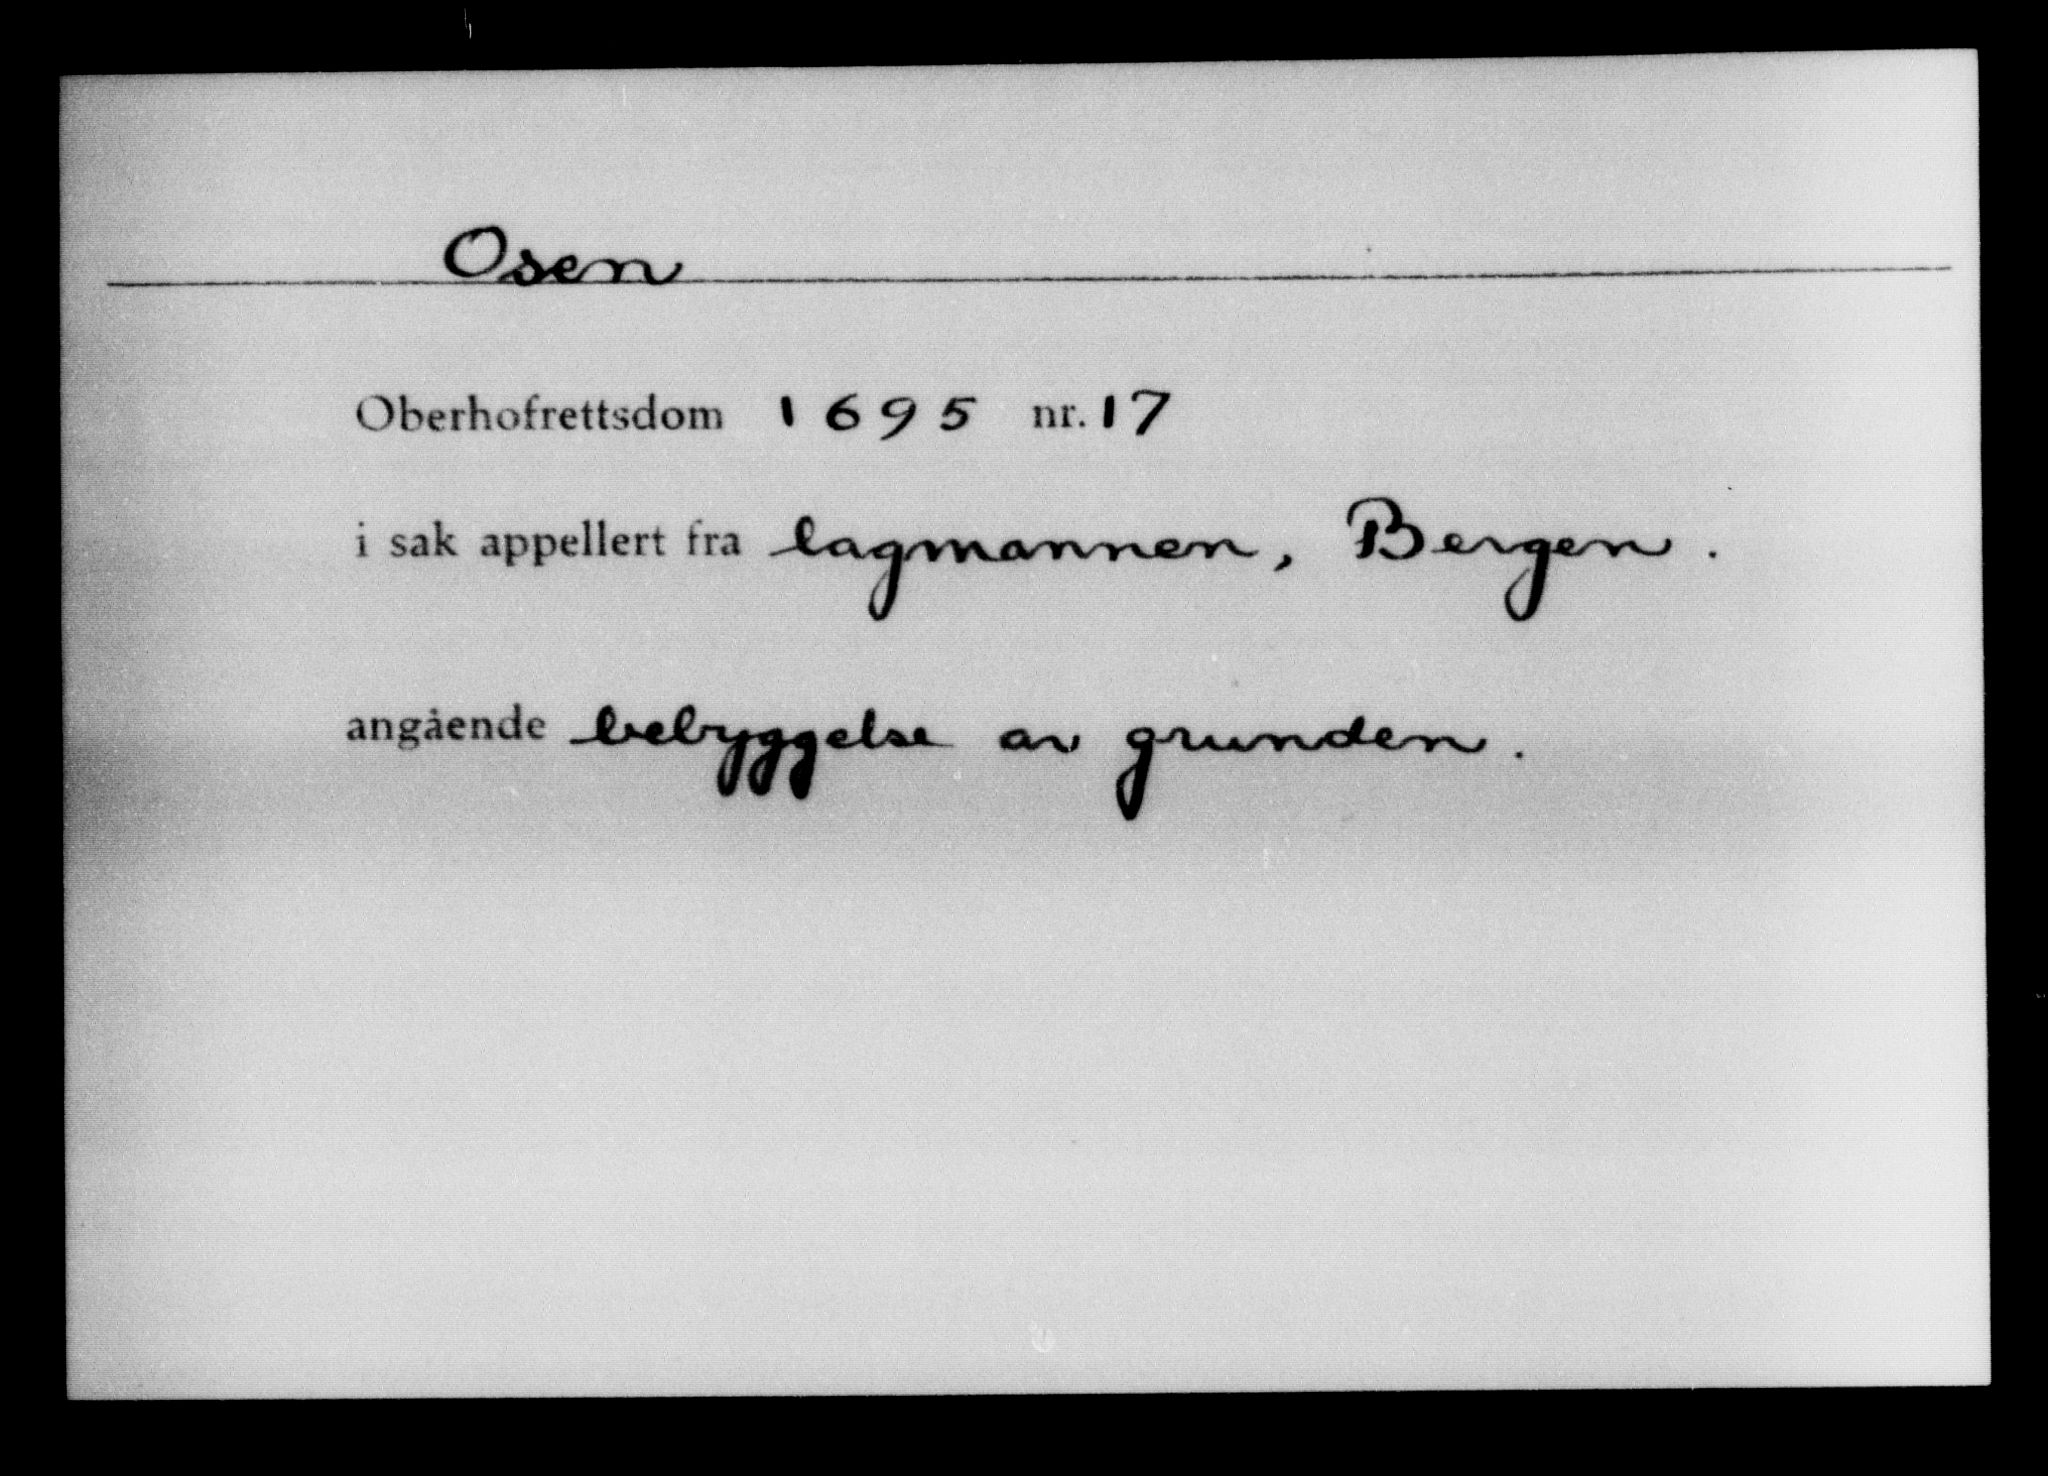 Osen
Oberhofrettsdom 1695 nr. 17
i sak appellert fra lagmannen, Bergen.
angående bebyggelse av grunden.